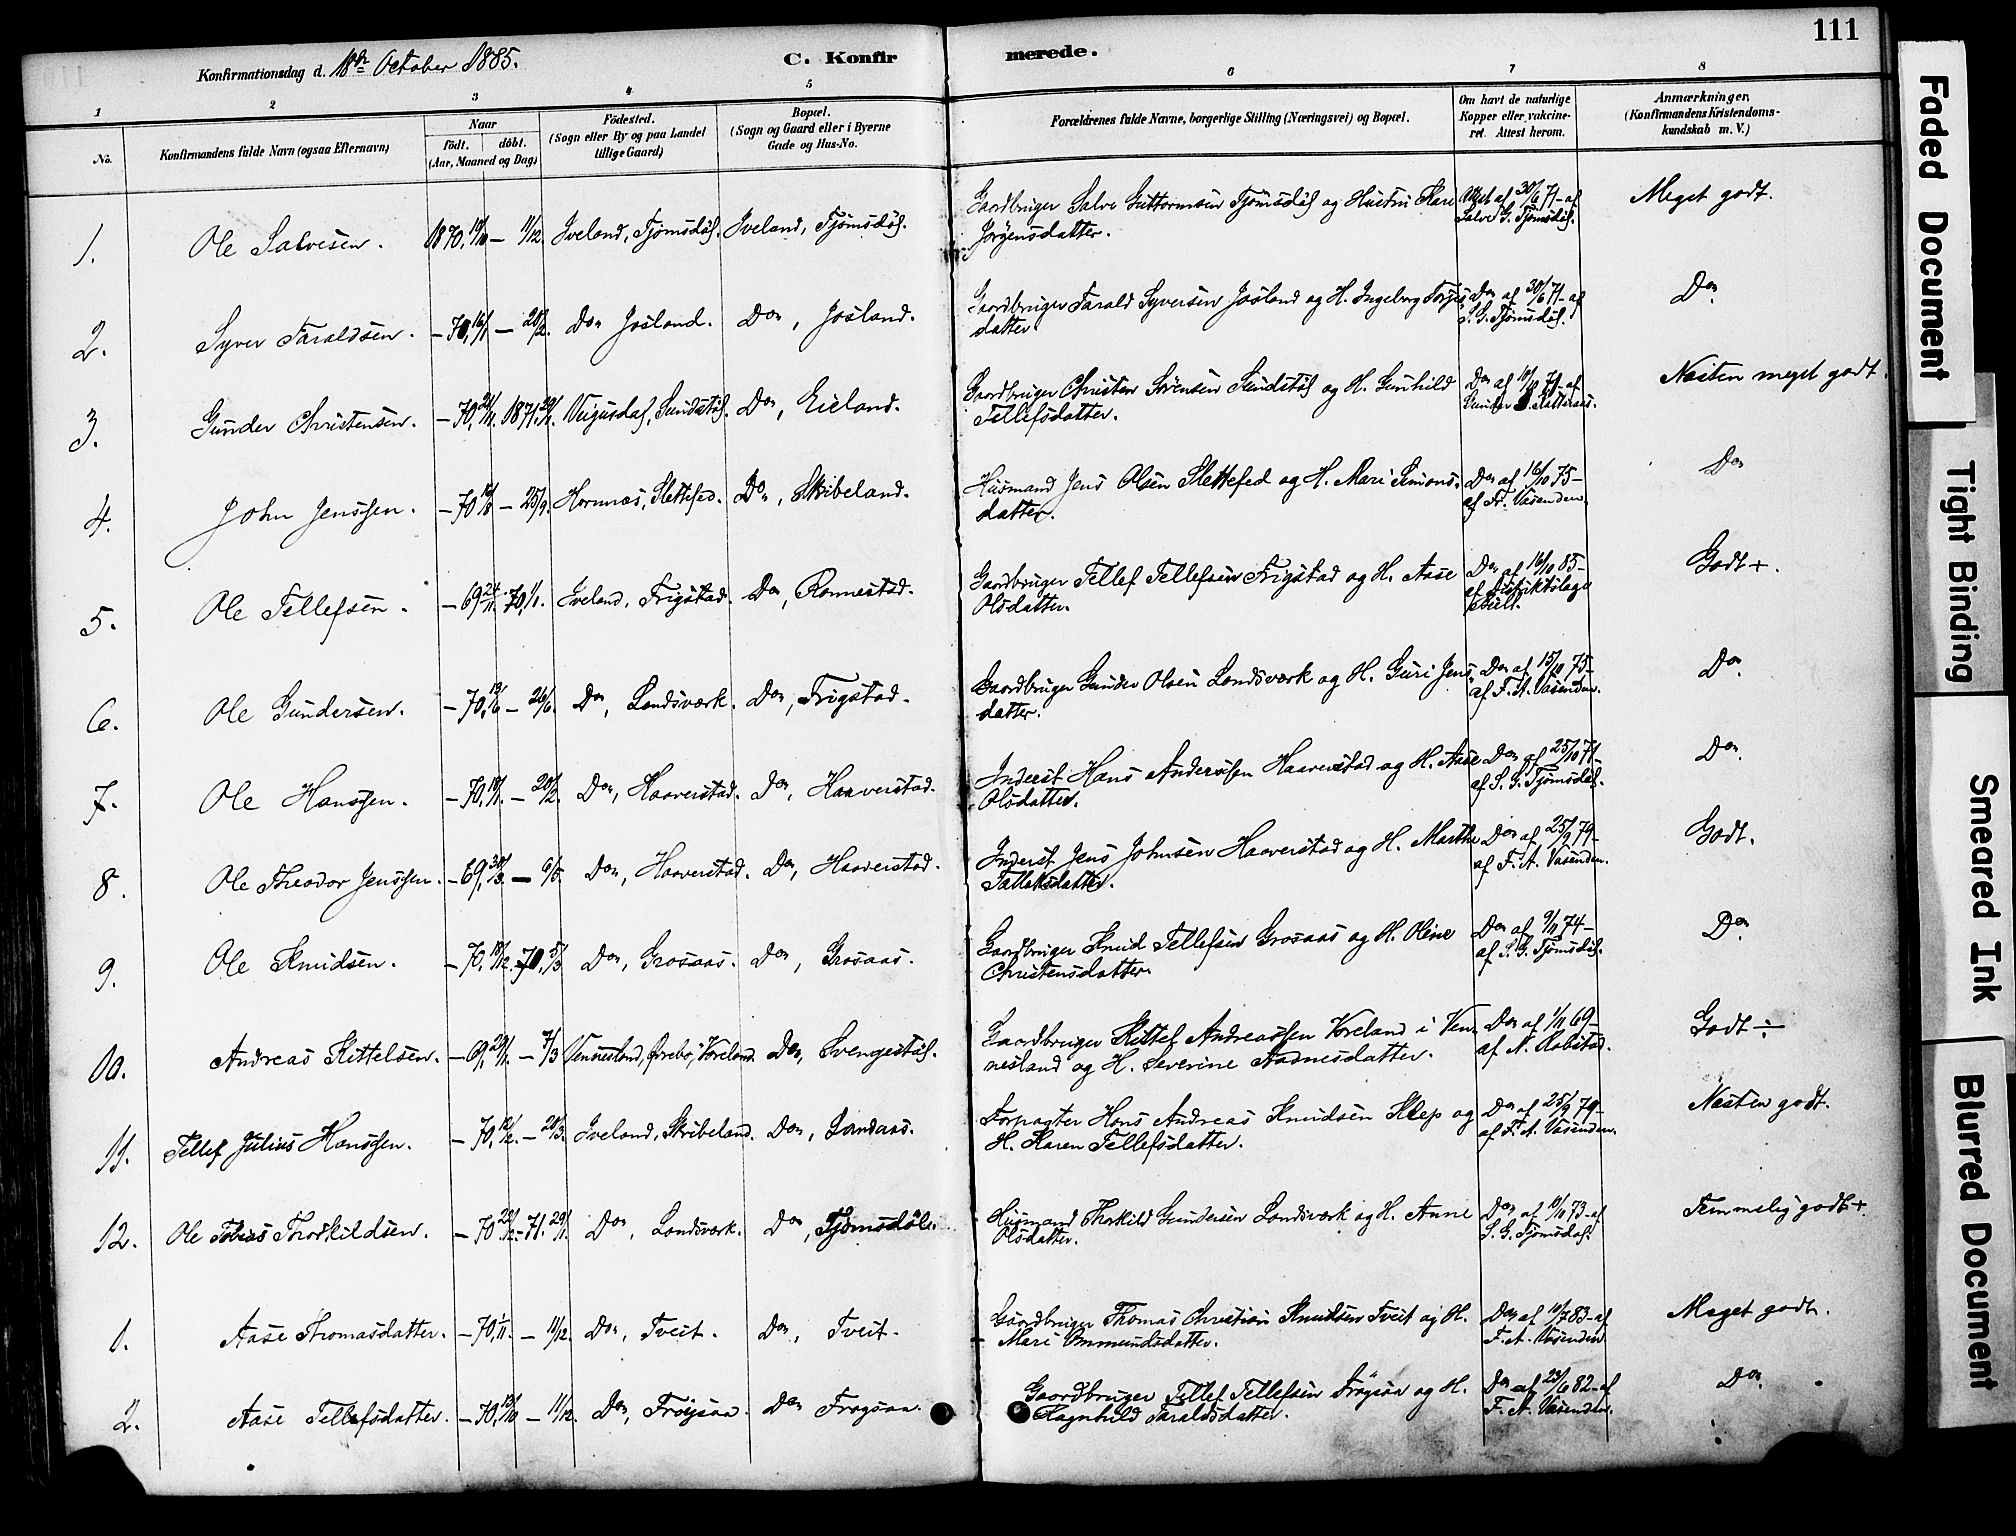 111
Konfirmationsdag d. 18de October 1885.
C. Konfirmerede.
1 2 3 4 5 6 7 8
No.
Konfirmandens fulde Navn (ogsaa Efternavn)
Naar
født. døbt.
(Aar, Maaned og Dag)
Fødested.
(Sogn eller By og paa Landet
tillige Gaard)
Bopæl.
(Sogn og Gaard eller i Byerne
Gade og Hus-No.
Forældrenes fulde Navne, borgerlige Stilling (Næringsvei) og Bopæl.
Om havt de naturlige
Kopper eller vakcine-
ret. Attest herom.
Anmærkninger.
(Konfirmandens Kristendoms-
kundskab m. V.)
1. Ole Salvesen. 1870, 19/10 – 11/12. Iveland, Tjømsdøl. Iveland, Tjømsdøl. Gaardbruger Salve Guttormsen Tjømsdøl og Hustru Kari Attest af 30/6 71 – af Meget godt.
Jørgensdatter. Salve G. Tjømsdøl.
2. Syver Taraldsen. – 70, 16/1 – 20/2. Do, Josland. Do, Josland. Gaardbruger Tarald Syversen Josland og H. Ingeborg Torjus- Do af 30/6 71 – af Do
datter. S. G. Tjømsdøl.
3. Gunder Christensen. – 70, 1871. Veigusdal, Sundstøl. Do, Eieland. Gaardbruger Christen Sørensen Sundstøl og H. Gunhild Do af 71 – af Næsten meget godt.
Tellefsdatter. Gunder
4. John Jenssen. – 70 – 25/9. Hornnæs, Slettefed. Do, Skibeland. Husmand Jens Olsen Slettefed og H. Mari Simons- Do af 16/10 75 – Do
datter. af Fr. Vasenden.
5. Ole Tellefsen. – 69, 24/11. 70, 1/1. Iveland, Frigstad. Do, Ronnestad. Gaardbruger Tellef Tellefsen Frigstad og H. Aase Do af 16/10 85 – Godt +.
Olsdatter. af Distriktslæge
6. Ole Gundersen. – 70, 13/6 – 26/6. Do, Landsværk. Do, Frigstad. Gaardbruger Gunder Olsen Landsværk og H. Guri Jens- Do af 15/10 75 – Do
datter. af F. A. Vasenden.
7. Ole Hanssen. – 70, 18/1. – 20/2. Do, Haaverstad. Do, Haaverstad. Inderst Hans Anderssen Haaverstad og H. Aase Do af 25/10 71 – Do
Olsdatter. af S. G. Tjømsdøl.
8. Ole Theodor Jenssen. – 69, 30/3. – 6/5. Do, Haaverstad. Do, Haaverstad. Inderst Jens Johnsen Haaverstad og H. Marthe Do af 25/9 79 – Godt.
Tallaksdatter. af F. A. Vasenden.
9. Ole Knudsen. – 70, – 70, 5/3 Do, Grosaas. Do, Grosaas. Gaardbruger Knud Tellefsen Grosaas og H. Oline Do af 74 – Do
Christensdatter. af S. G. Tjømsdøl.
10. Andreas Kittelsen. – 69, 29/1. – 7/3 Vennesland, Øvrebø, Voreland. Do, Svengestøl. Gaardbruger Kittel Andreassen Voreland i Ven- Do af 69 – Godt ÷
nesland og H. Severine Aadnesdatter. af N. Aabstad.
11. Tellef Julius Hanssen. – 70, 12/2. – 20/3. Iveland, Skibeland. Do, Landaas. Forpagter Hans Andreas Knudsen Klep og Do af 25/9 79 – Næsten godt.
H. Karen Tellefsdatter. af F. A. Vasenden.
12. Ole Tobias Thorkildsen. – 70 – 71. 29/1. Do, Landsværk. Do, Tjømsdøl. Husmand Thorkild Gundersen Landsværk og H. Anne Do af 73 – af Temmelig godt +.
Olsdatter. S. G. Tjømsdøl.
1. Aase Thomasdatter. – 70, 1/11. – 11/12. Do, Tveit. Do, Tveit. Gaardbruger Thomas Christian Knudsen Tveit og H. Do af 10/7 83 – af Meget godt.
Mari Ommundsdatter. F. A. Vasenden
2. Aase Tellefsdatter. – 70, 13/10 – 11/12. Do, Frøysaa. Do Frøysaa. Gaardbruger Tellef Tellefsen Frøysaa og H. Do af 23/6 82 – af Do
Ragnhild Taraldsdatter. F. A. Vasenden.
Faded Document
Tight Binding
Smeared Ink
Blurred Document